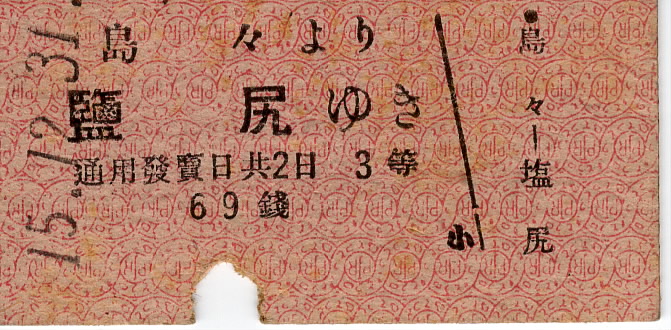 島々より
鹽尻ゆき
通用發賣日共2日 3等
69錢
15.12.31
島々―塩尻
小